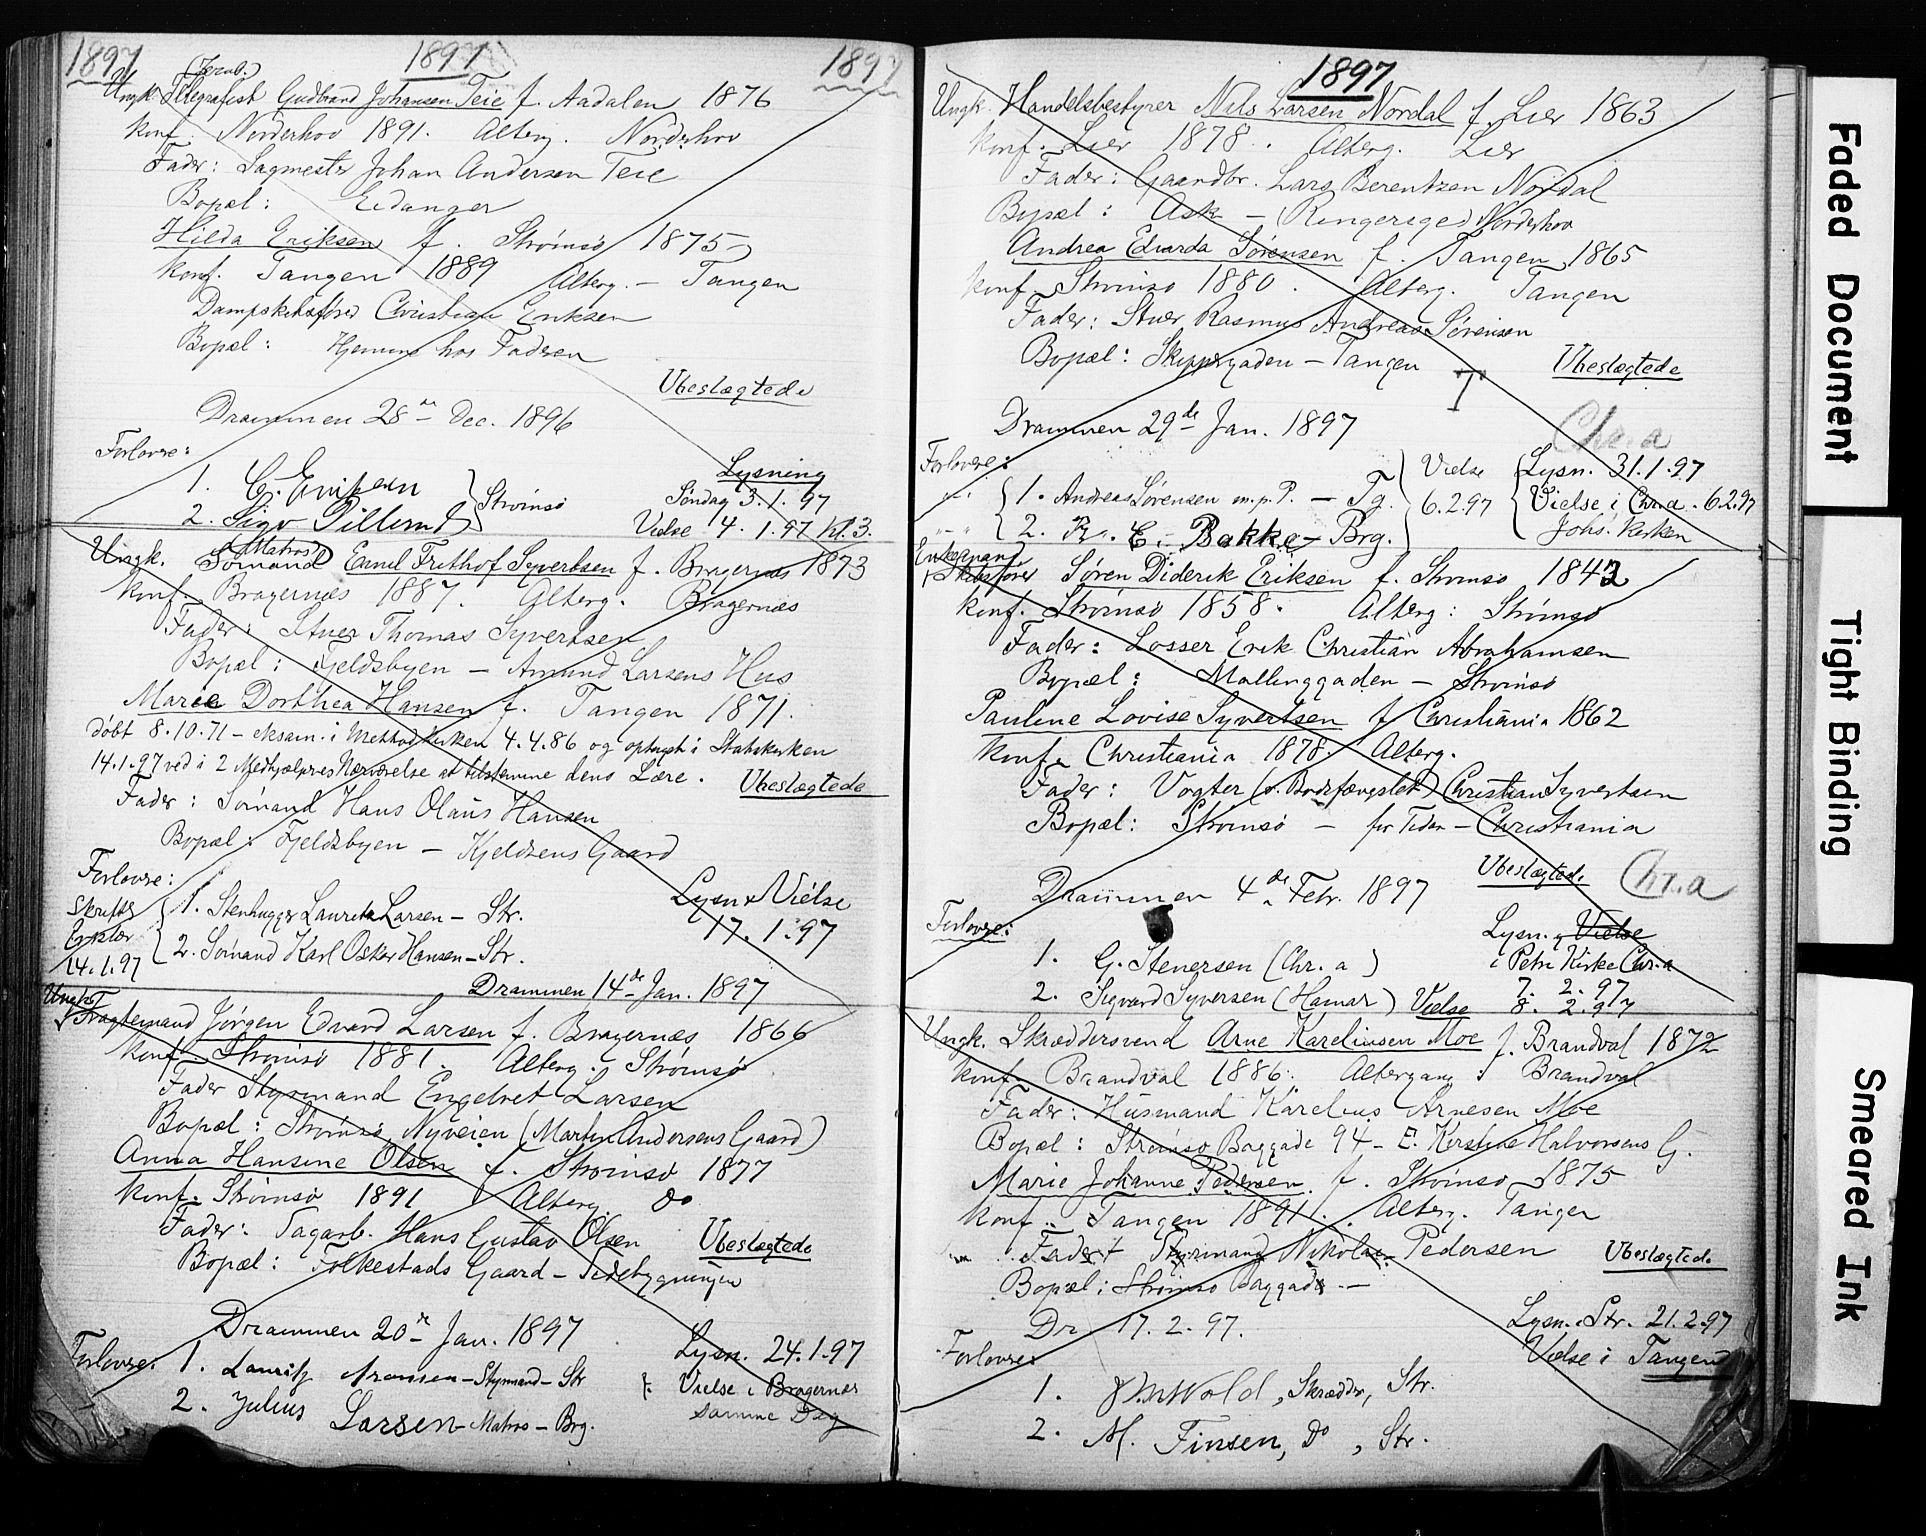 1897 1897 1897
(Jernb.)
Ungk. Telegrafist Gudbrand Johansen Teie f. Aadalen 1876
konf. Norderhov 1891. Alterg. Norderhov
Fader: Sagmester Johan Andersen Teie
Bopæl: Eidanger
Hilda Eriksen f. Strömsö 1875
konf. Tangen 1889 Alterg. – Tangen
Dampskibsfører Christian Eriksen
Bopæl: Hjemme hos Faderen
Ubeslægtede
Drammen 28de Dec. 1896
Forlovere:
1. C. Eriksen
2. Sigv Pillerud } Strömsö
Lysning
Söndag 3.1.97
Vielse 4.1.97 Kl. 3.
(Matros)
Ungk. Sömand Emil Frithof Syvertsen f. Bragernæs 1873
konf. Bragernæs 1887. Alterg. Bragernæs
Fader: Stuer Thomas Syvertsen
Bopæl: Fjeldbyen – Amund Larsens Hus
Marie Dorthea Hansen f. Tangen 1871.
döbt 8.10.71 – eksam. i Methodkirken 4.4.86 og optaget i Statskirken
14.1.97 ved i 2 Medhjælperes Nærværelse at tilstemme dens Lære.
Ubeslægtede
Fader: Sömand Hans Olaus Hansen
Bopæl: Fjeldbyen – Kjeldsens Gaard
Forlovere:
skriftl.
14.1.97
1. Stenhugger Lauritz Larsen – Str.
2. Sömand Karl Oskar Hansen – Str.
Lysn & Vielse
17.1.97
Drammen 14de Jan. 1897
Ungk.
Fragtemand Jörgen Edvard Larsen f. Bragernæs 1866
konf. Strömsö 1881. Alterg. Strömsö
Fader Styrmand Engebret Larsen
Bopæl: Strömsö, Nyveien (Martin Andersens Gaard)
Anna Hansine Olsen f. Strömsö 1877
konf. Strömsö 1891 Alterg. do
Fader: Sagarb. Hans Gustav Olsen
Ubeslægtede
Bopæl: Folkestads Gaard – Sidebygningen
Drammen 20de Jan. 1897
Forlovere:
1. Lauritz Aronsen – Styrmand – Str
2. Julius Larsen – Matros – Brg.
Lysn. 24.1.97
Vielse i Bragernæs
samme Dag
1897
Ungk. Handelsbestyrer Nils Larsen Nordal f. Lier 1863
konf. Lier 1878. Alterg. Lier
Fader: Gaardbr. Lars Berentzen Nordal
Bopæl: Ask – (Ringerige) Norderhov
Andrea Edvarda Sörensen f. Tangen 1865
konf. Strömsö 1880. Alterg. Tangen
Fader: Stuer Rasmus Andreas Sörensen
Bopæl: Skippergaden – Tangen
Ubeslægtede
T
Drammen 29de Jan. 1897
Chr.a
Forlovere:
1. Andreas Sörensen m.p.P. – Tg.
2. K. E. Bakke – Brg.
Vielse
6.2.97
Lysn. 31.1.97
Vielse i Chr.a. 6.2.97
Johs. Kirken
Enkemand
Skibsfører Sören Diderik Eriksen f. Strömsö 1843
konf. Strömsö 1858. Alterg: Strömsö
Fader: Losser Erik Christian Abrahamsen
Bopæl: Mallinggaden – Strömsö
Pauline Lovise Syvertsen f. Christiania 1862
konf. Christiania 1878. Alterg.
Fader: Vogter (v. Bodsfængslet) Christian Syvertsen
Bopæl: Strömsö – for Tiden – Christiania
Ubeslægtede
Chr.a
Drammen 4de Febr. 1897
Forlovere:
1. G. Stenersen (Chr.a)
2. Sigvard Syversen (Hamar)
Lysn. & Vielse
i Petri Kirke Chr.a
7.2.97
Vielse 8.2.97
Ungk. Skræddersvend Arne Karelinsen Moe f. Brandval 1872
konf. Brandval 1886. Altergang i Brandval
Fader: Husmand Karelius Arnesen Moe
Bopæl: Strömsö Baggade 94 – E. Kirstine Halvorsens G.
Marie Johanne Pedersen f. Strömsö 1875
konf. Tangen 1891. Alterg. Tangen
Fader † Styrmand Nikolai Pedersen
Ubeslægtede
Bopæl: Strömsö Baggade –
Dr 17.2.97.
Lysn. Str. 21.2.97
Vielse i Tangen
Forlovere:
1. Wold, Skrædder, Str.
2. M. Finsen, Do, Str.
Faded Document
Tight Binding
Smeared Ink